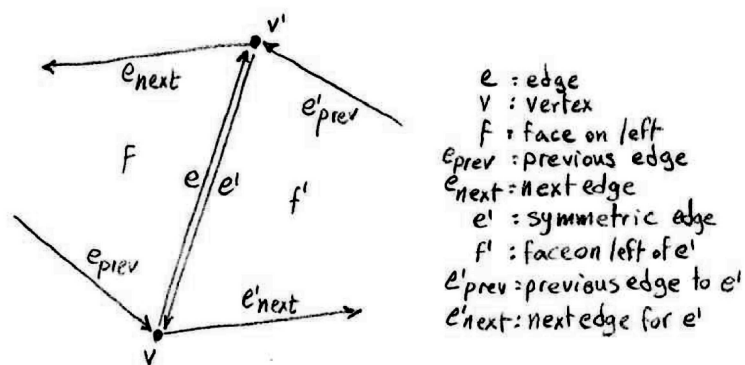 v'
e_next
e'_prev
f
e
e'
f'
e_prev
e'_next
v
e : edge
v : vertex
f : face on left
e_prev : previous edge
e_next : next edge
e' : symmetric edge
f' : face on left of e'
e'_prev : previous edge to e'
e'_next : next edge for e'